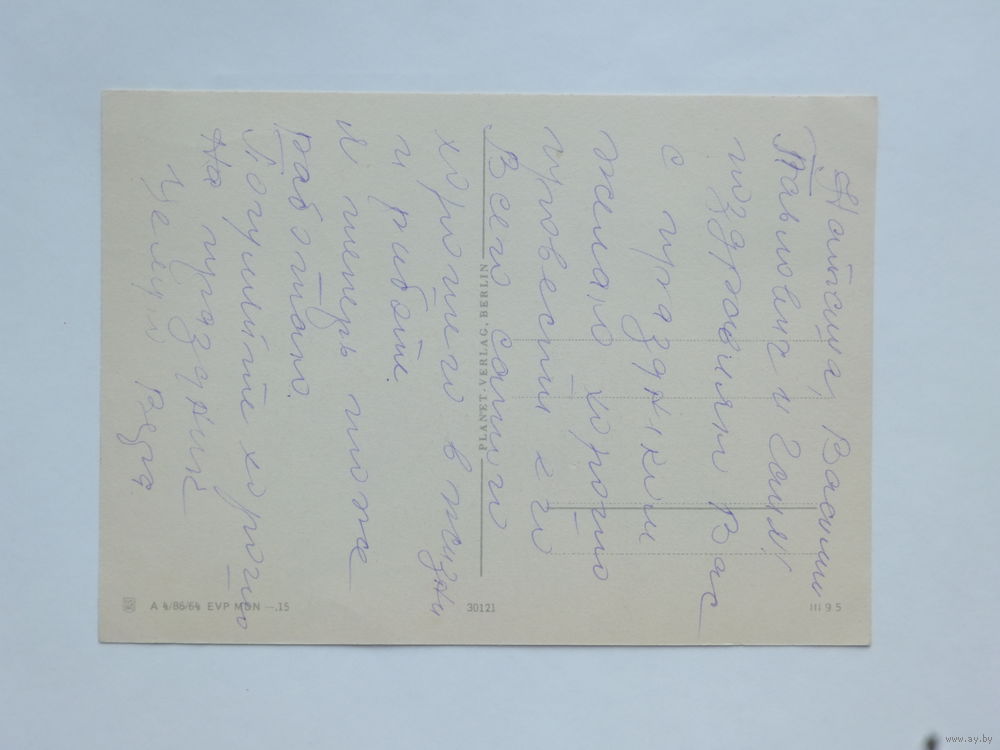 Наташа, Василий
Павлович и Галя!
поздровляю Вас
с праздником
желаю хорошо
провести его
Всего самого
хорошего в жизни
и работе.
Я теперь тоже
работаю.
Погуляйте хорошо
на празднике
Целую Вера
PLANET-VERLAG, BERLIN
A 4/86/64 EVP MDN —.15
30121
III 9 5
www.ay.by